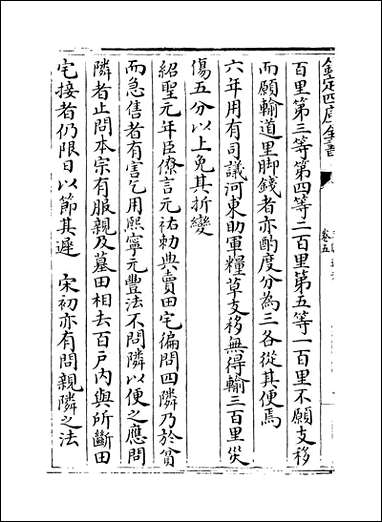 欽定四庫全書
卷五
百里第三等第四等二百里第五等一百里不願支移
而願輸道里脚錢者亦酌度分為三各從其便焉
六年用有司議河東助軍糧草支移無得輸三百里災
傷五分以上免其折變
紹聖元年臣僚言元祐勅典賣田宅徧問四隣乃於貧
而急售者有害乞用熈寧元豐法不問隣以便之應問
隣者止問本宗有服親及墓田相去百戶內與所斷田
宅接者仍限日以節其遲　宋初亦有問親隣之法